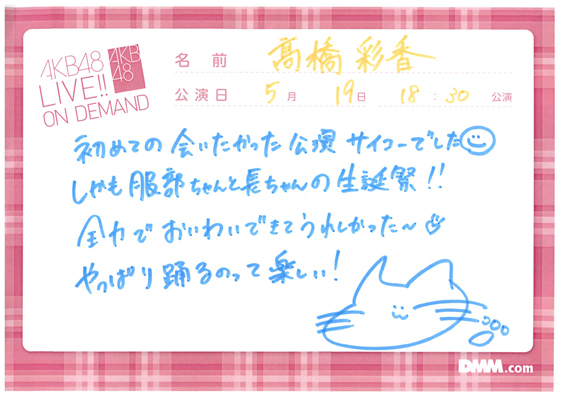 AKB48
LIVE!!
ON DEMAND
AKB
48
名前 髙橋 彩香
公演日 5月 19日 18:30 公演
初めての 会いたかった 公演 サイコーでした
しかも 服部ちゃんと長ちゃんの 生誕祭!!
全力で おいわいできてうれしかった〜
やっぱり 踊るのって 楽しい!
DMM.com